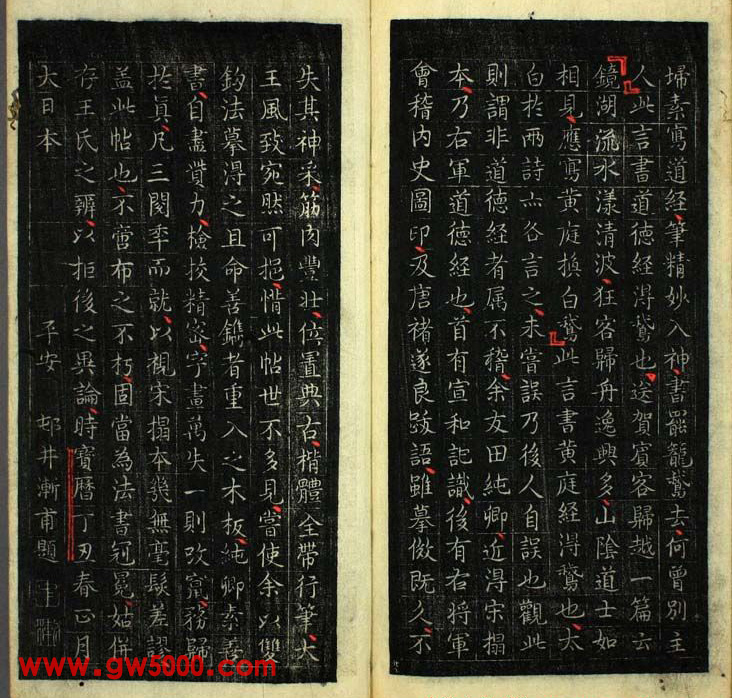 埽素寫道經筆精妙入神書罷籠鵞去何曾別主
人此言書道德經淂鵞也送賀賓客歸越一篇云
鏡湖流水漾清波狂客歸舟逸興多山陰道士如
相見應寫黄庭換白鵞此言書黄庭經淂鵞也太
白扵兩詩亦各言之未嘗誤乃後人自誤也觀此
則謂非道德經者属不稽余友田純卿近淂宋搨
本乃右軍道德經也首有宣和記識後有右將軍
會稽内史圖印及唐褚遂良跋語雖摹倣既久不
失其神采筋肉豐壮位置典古楷體全帶行筆大
王風致宛然可挹惜此帖世不多見嘗使余以雙
鈎法摹淂之且命善鐫者重入之木板純卿素善
書自盡贲力檢挍精密字畫萬失一則改甯務歸
扵眞凡三閲季而就以視宋搨本幾無毫髮差謬
盖此帖也不啻布之不朽固當為法書冠冕姑併
存王氏之辨以拒後之異論時寳暦丁丑春正月
大日本 平安 邨井漸甫題
www.gw5000.com